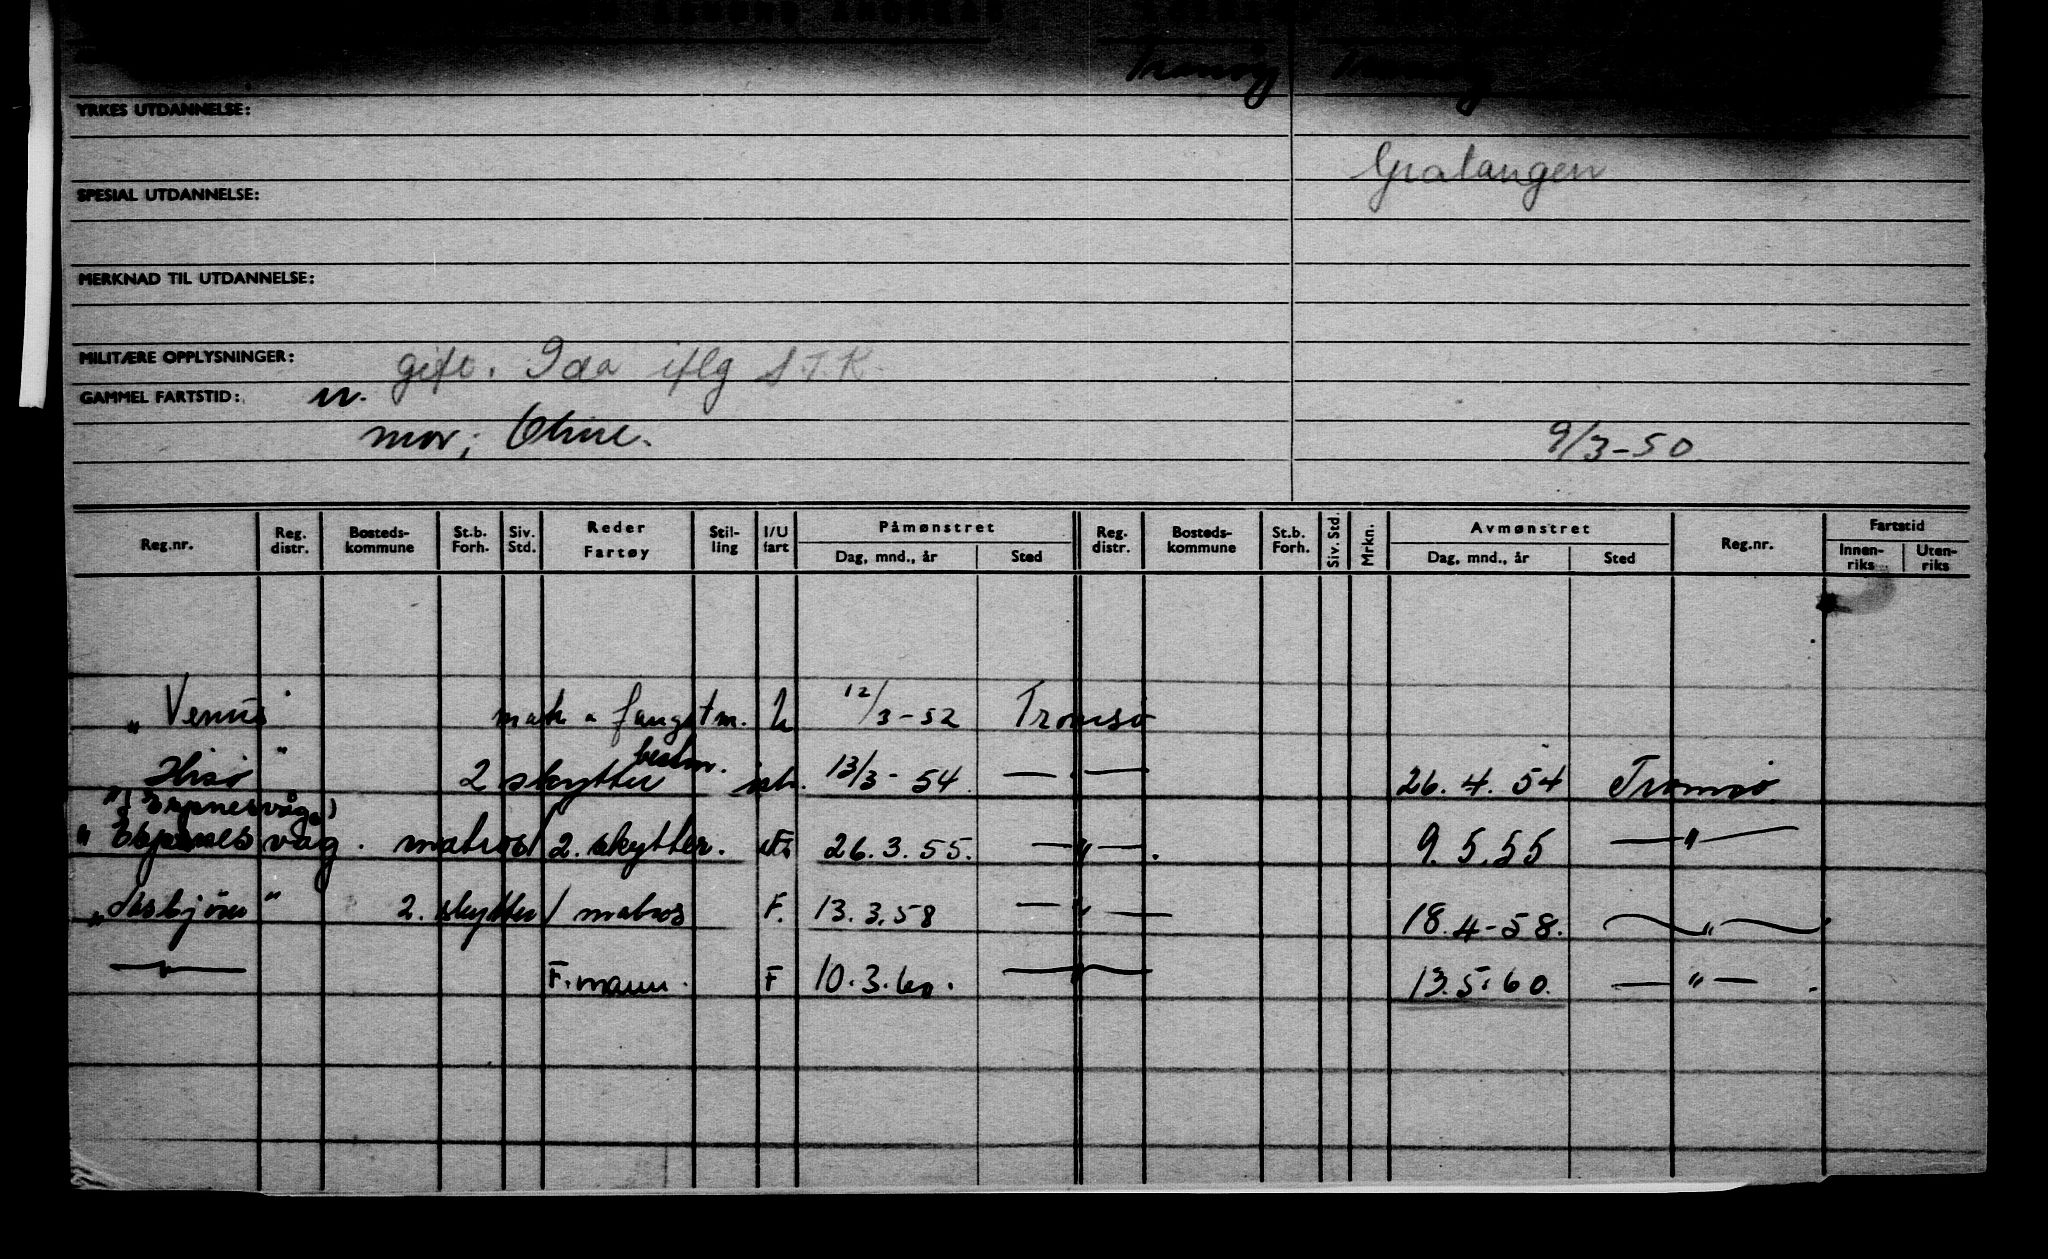 Tranøy Tranøy
YRKES UTDANNELSE:
Gratangen
SPESIAL UTDANNELSE:
MERKNAD TIL UTDANNELSE:
MILITÆRE OPPLYSNINGER: gift. Ida iflg S.T.K.
GAMMEL FARTSTID: u.
mor; Oline. 9/3-50
Reg.nr. Reg. distr. Bosteds-kommune St.b. Forh. Siv. Std. Reder Fartøy Stil-ling I/U fart Påmønstret Dag, mnd., år Sted Reg. distr. Bosteds-kommune St.b. Forh. Siv. Std. Mrkn. Avmønstret Dag, mnd., år Sted Reg.nr. Fartstid Innen-riks Uten-riks
„Venus" fangstm. 12/3-52 Tromsø
Hisø" 2 skytter bestm. ish. 13/3-54 — — 26.4.54 Tromsø
„Espnesvåg. matros/2. skytter. 26.3.55. —„—. 9.5.55 —"—
„Asbjørn" 2. skytter/matros F. 13.3.58 —"— 18.4-58. —„—
—"— F.mann. F 10.3.60. —"— 13.5.60. —"—